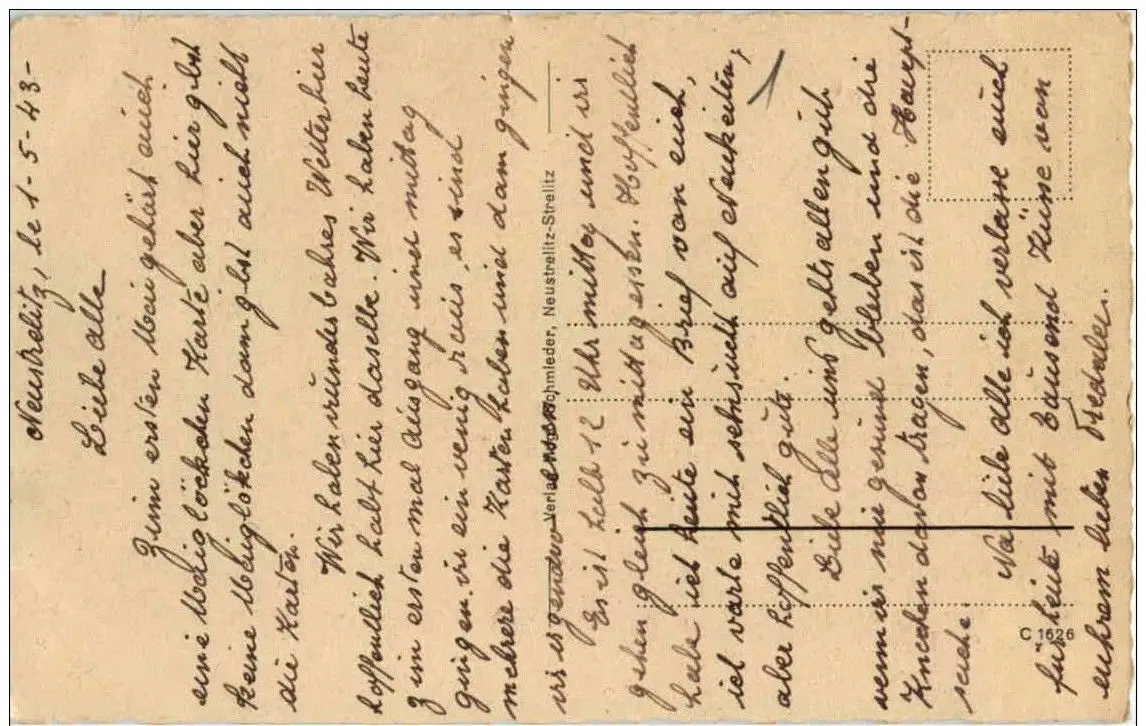 Neustrelitz, le 1-5-43-
Liebe alle
Zum ersten Mai gehört auch
eine Maiglöckchen Karte aber hier gibst
keine Maiglökchen dann gibt auch nicht
die Karten.
Wir haben wunderbahres Wetter hier
hoffendlich habt hier daselbe. Wir haben heute
zum ersten mal ausgang unser mittag
gingen wir ein wenig raus, es sind
mehrere die Karten haben und dann gingen
wir irgendwo
Verlag Schmieder, Neustrelitz-Strelitz
Es ist halb 12 Uhr mittag und wir
gehen gleich zu mittag essen. Hoffendlich
habe ich heute ein Brief von euch,
ich warte mit sehnsucht auf Neukeiten,
aber hoffendlich gute.
Liebe alle uns gehts allen gut
wenn wir nur gesund bleiben und die
Knochen davon tragen, das ist die Haupt-
sache
Na liebe alle ich verlasse euch
für heute mit Tausend Küsse von
euhrem lieben
C 1626